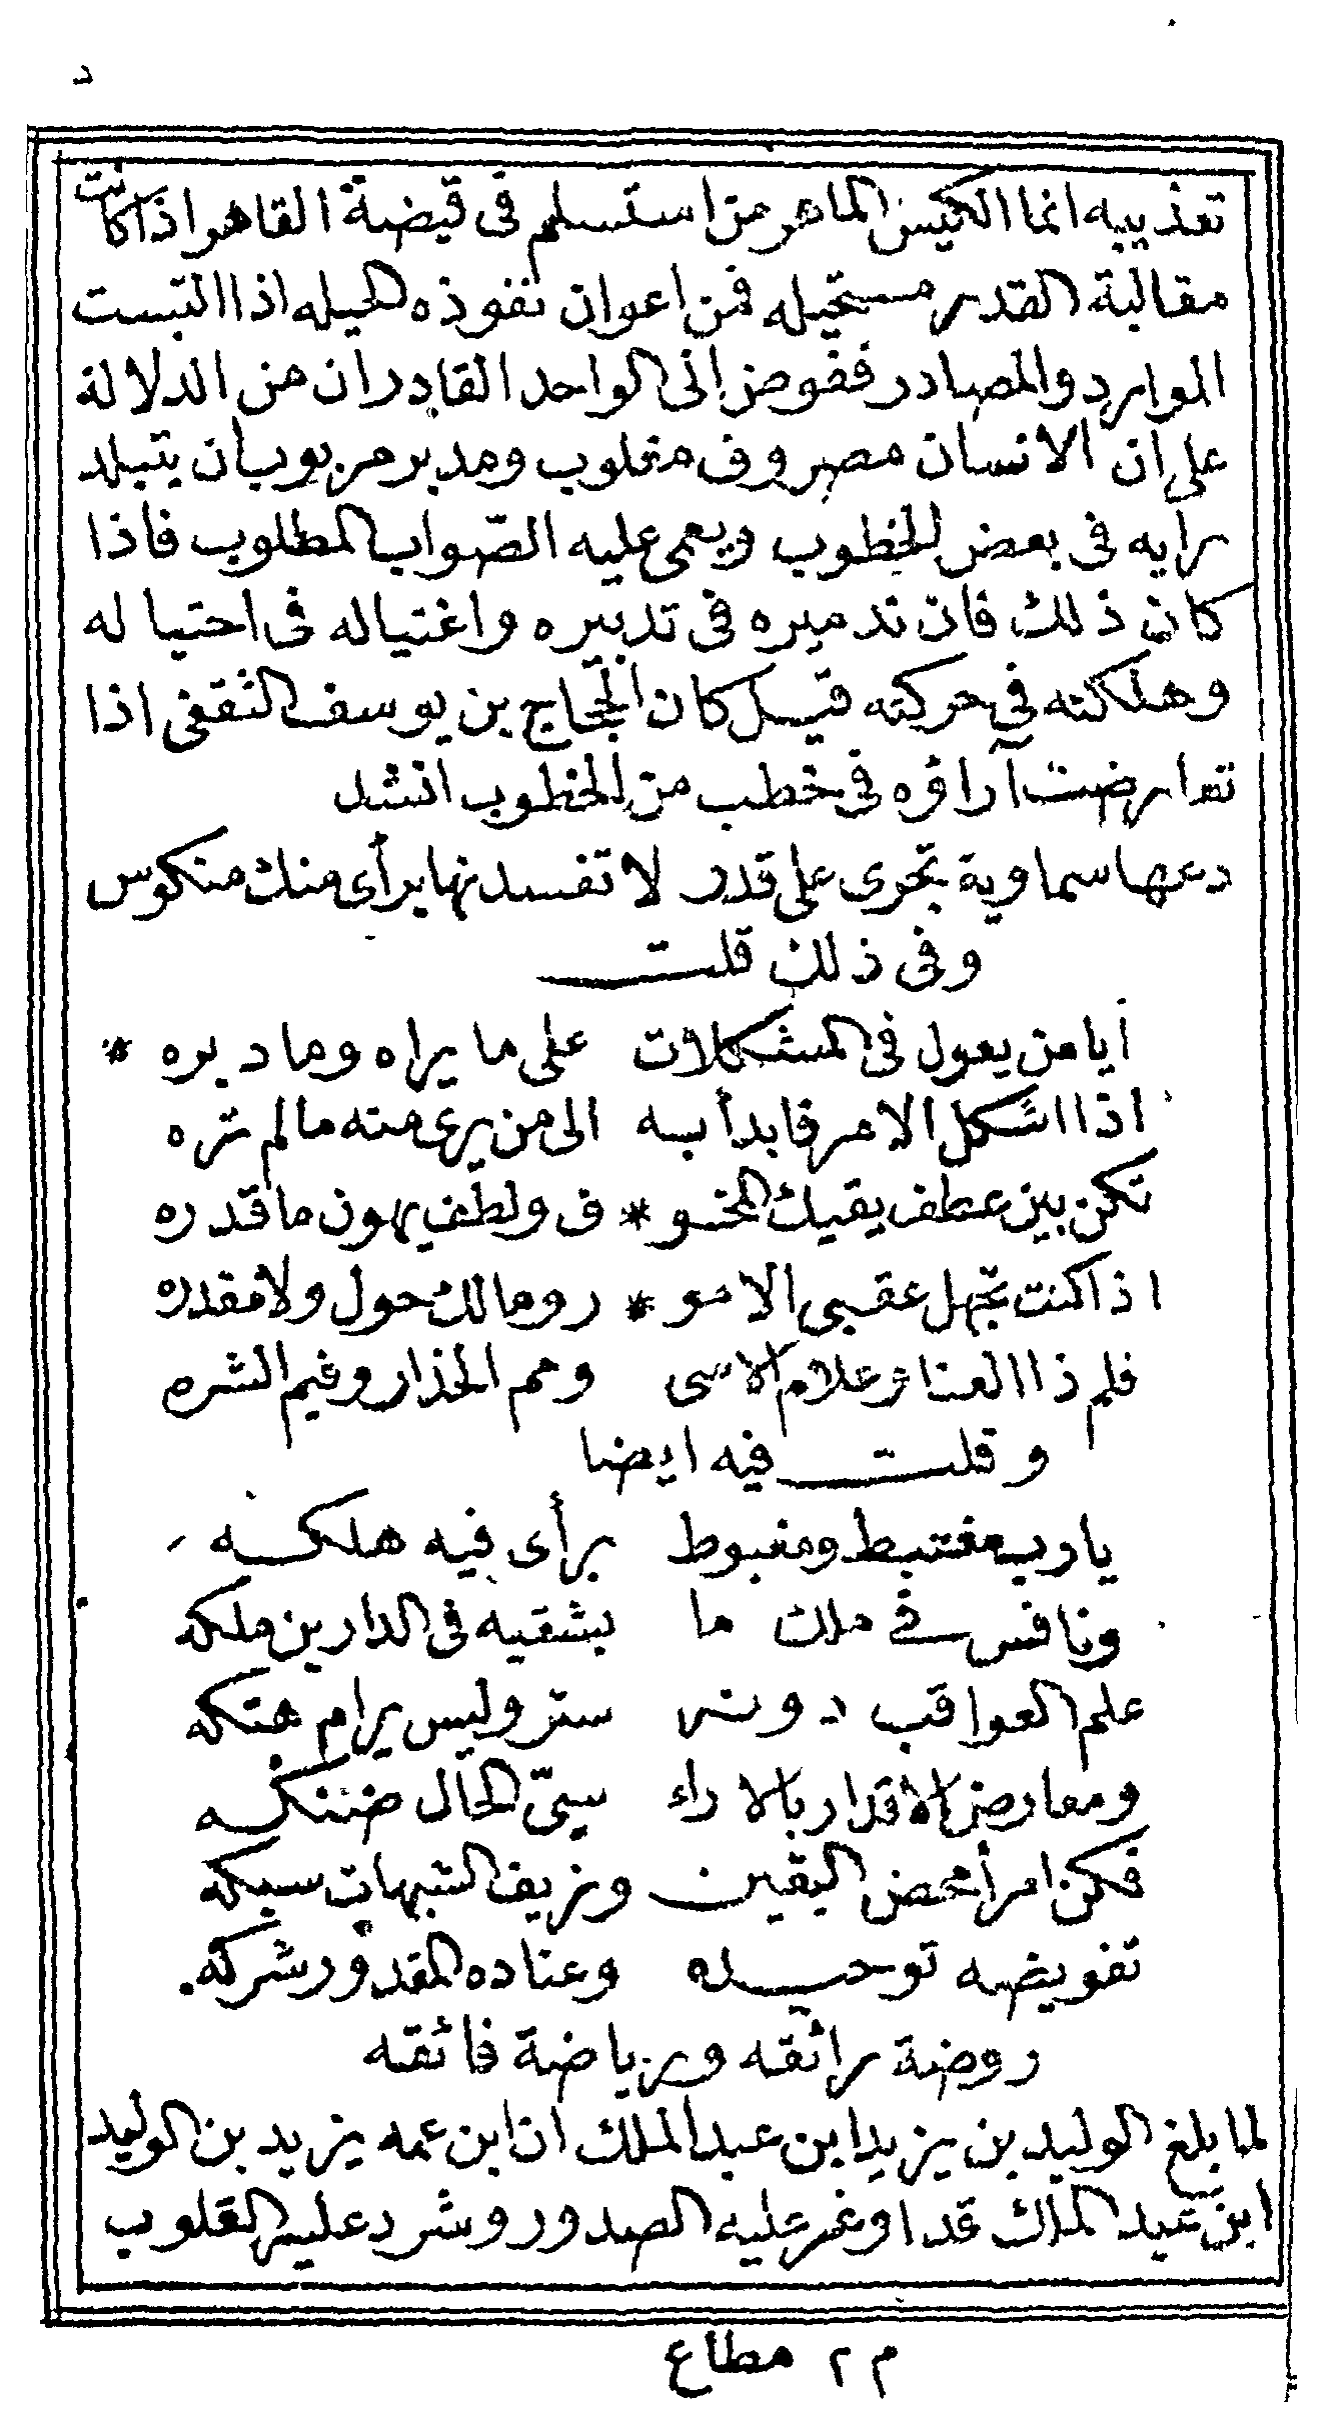 د
تعذيبه انما الكيس الماهر من استسلم فى قبضة القاهر اذا كانت
مقالبة القدر مستحيله فمن اعوان نفوذه الحيله اذا التبست
الموارد والمصادر ففوض الى الواحد القادر ان من الدلالة
على ان الانسان مصروف مغلوب ومدبر مربوب ان يتبلد
رايه فى بعض الخطوب ويعمى عليه الصّواب المطلوب فاذا
كان ذلك فان تدميره فى تدبيره واغتياله فى احتياله
وهلكته فى حركته قيل كان الحجاج بن يوسف الثقفى اذا
تعارضت آراؤه فى خطب من الخطوب انشد
دعها سماوية تجرى على قدر لا تفسدنها برأى منك منكوس
وفى ذلك قلت
أيا من يعول فى المشكلات على ما يراه وما دبره *
اذا اشكل الامر فابدأ به الى من يرى منه مالم تره
تكن بين عطف يقيك المخو * ف ولطف يهون ما قدره
اذا كنت تجهل عقبى الامو * ر ومالك حول ولا مقدره
فلم ذا العناء وعلام الاسى ومم الحذار وفيم الشره
وقلت فيه ايضا
يارب مغتبط ومغبوط برأى فيه هلكه
ونافس فى ملك ما يشقيه فى الدارين ملكه
علم العواقب دونه ستر وليس يرام هتكه
ومعارض الاقدار بالاراء سيئ الحال ضنكه
فكن امرأ محض اليقين وزيف الشبهات سبكه
تفويضه توحيده وعناده المقدور شركه.
روضة رائقه ورياضة فائقه
لما بلغ الوليد بن يزيد ابن عبد الملك ان ابن عمه يزيد بن الوليد
ابن عبد الملك قد اوغر عليه الصدور وشرد عليه القلوب
م ٢ مطاع